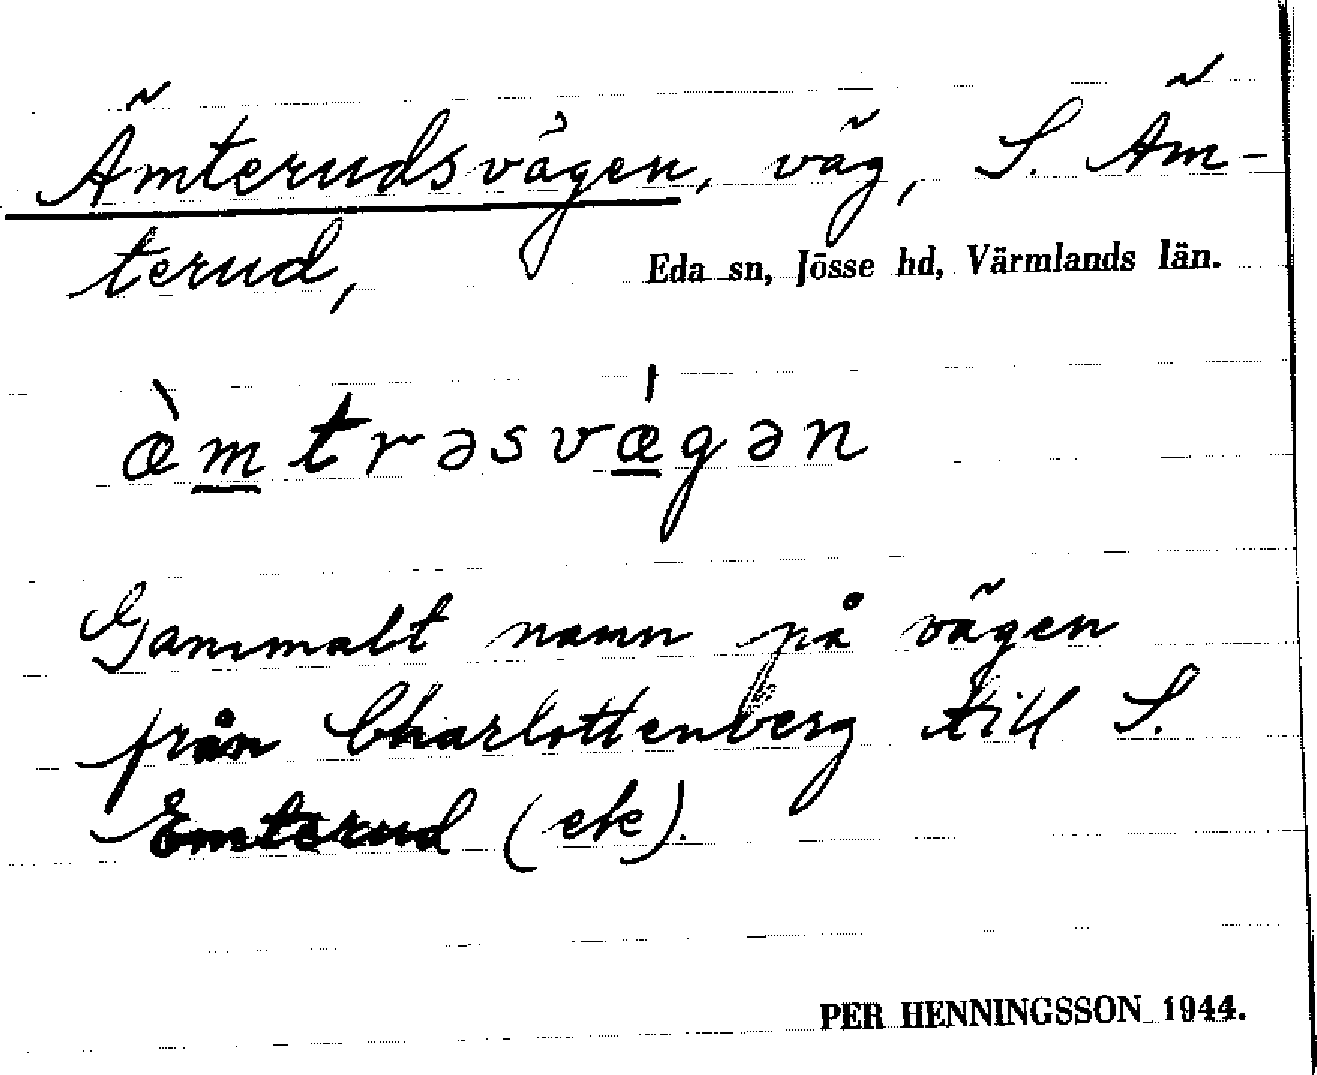 Ämterudsvägen, väg, S. Äm-
terud,
Eda sn, Jösse hd, Värmlands län.
æ̀m̲trəsvǽ̲gən
Gammalt namn på vägen
från Charlottenberg till S.
Emterud (ek).
PER HENNINGSSON 1944.